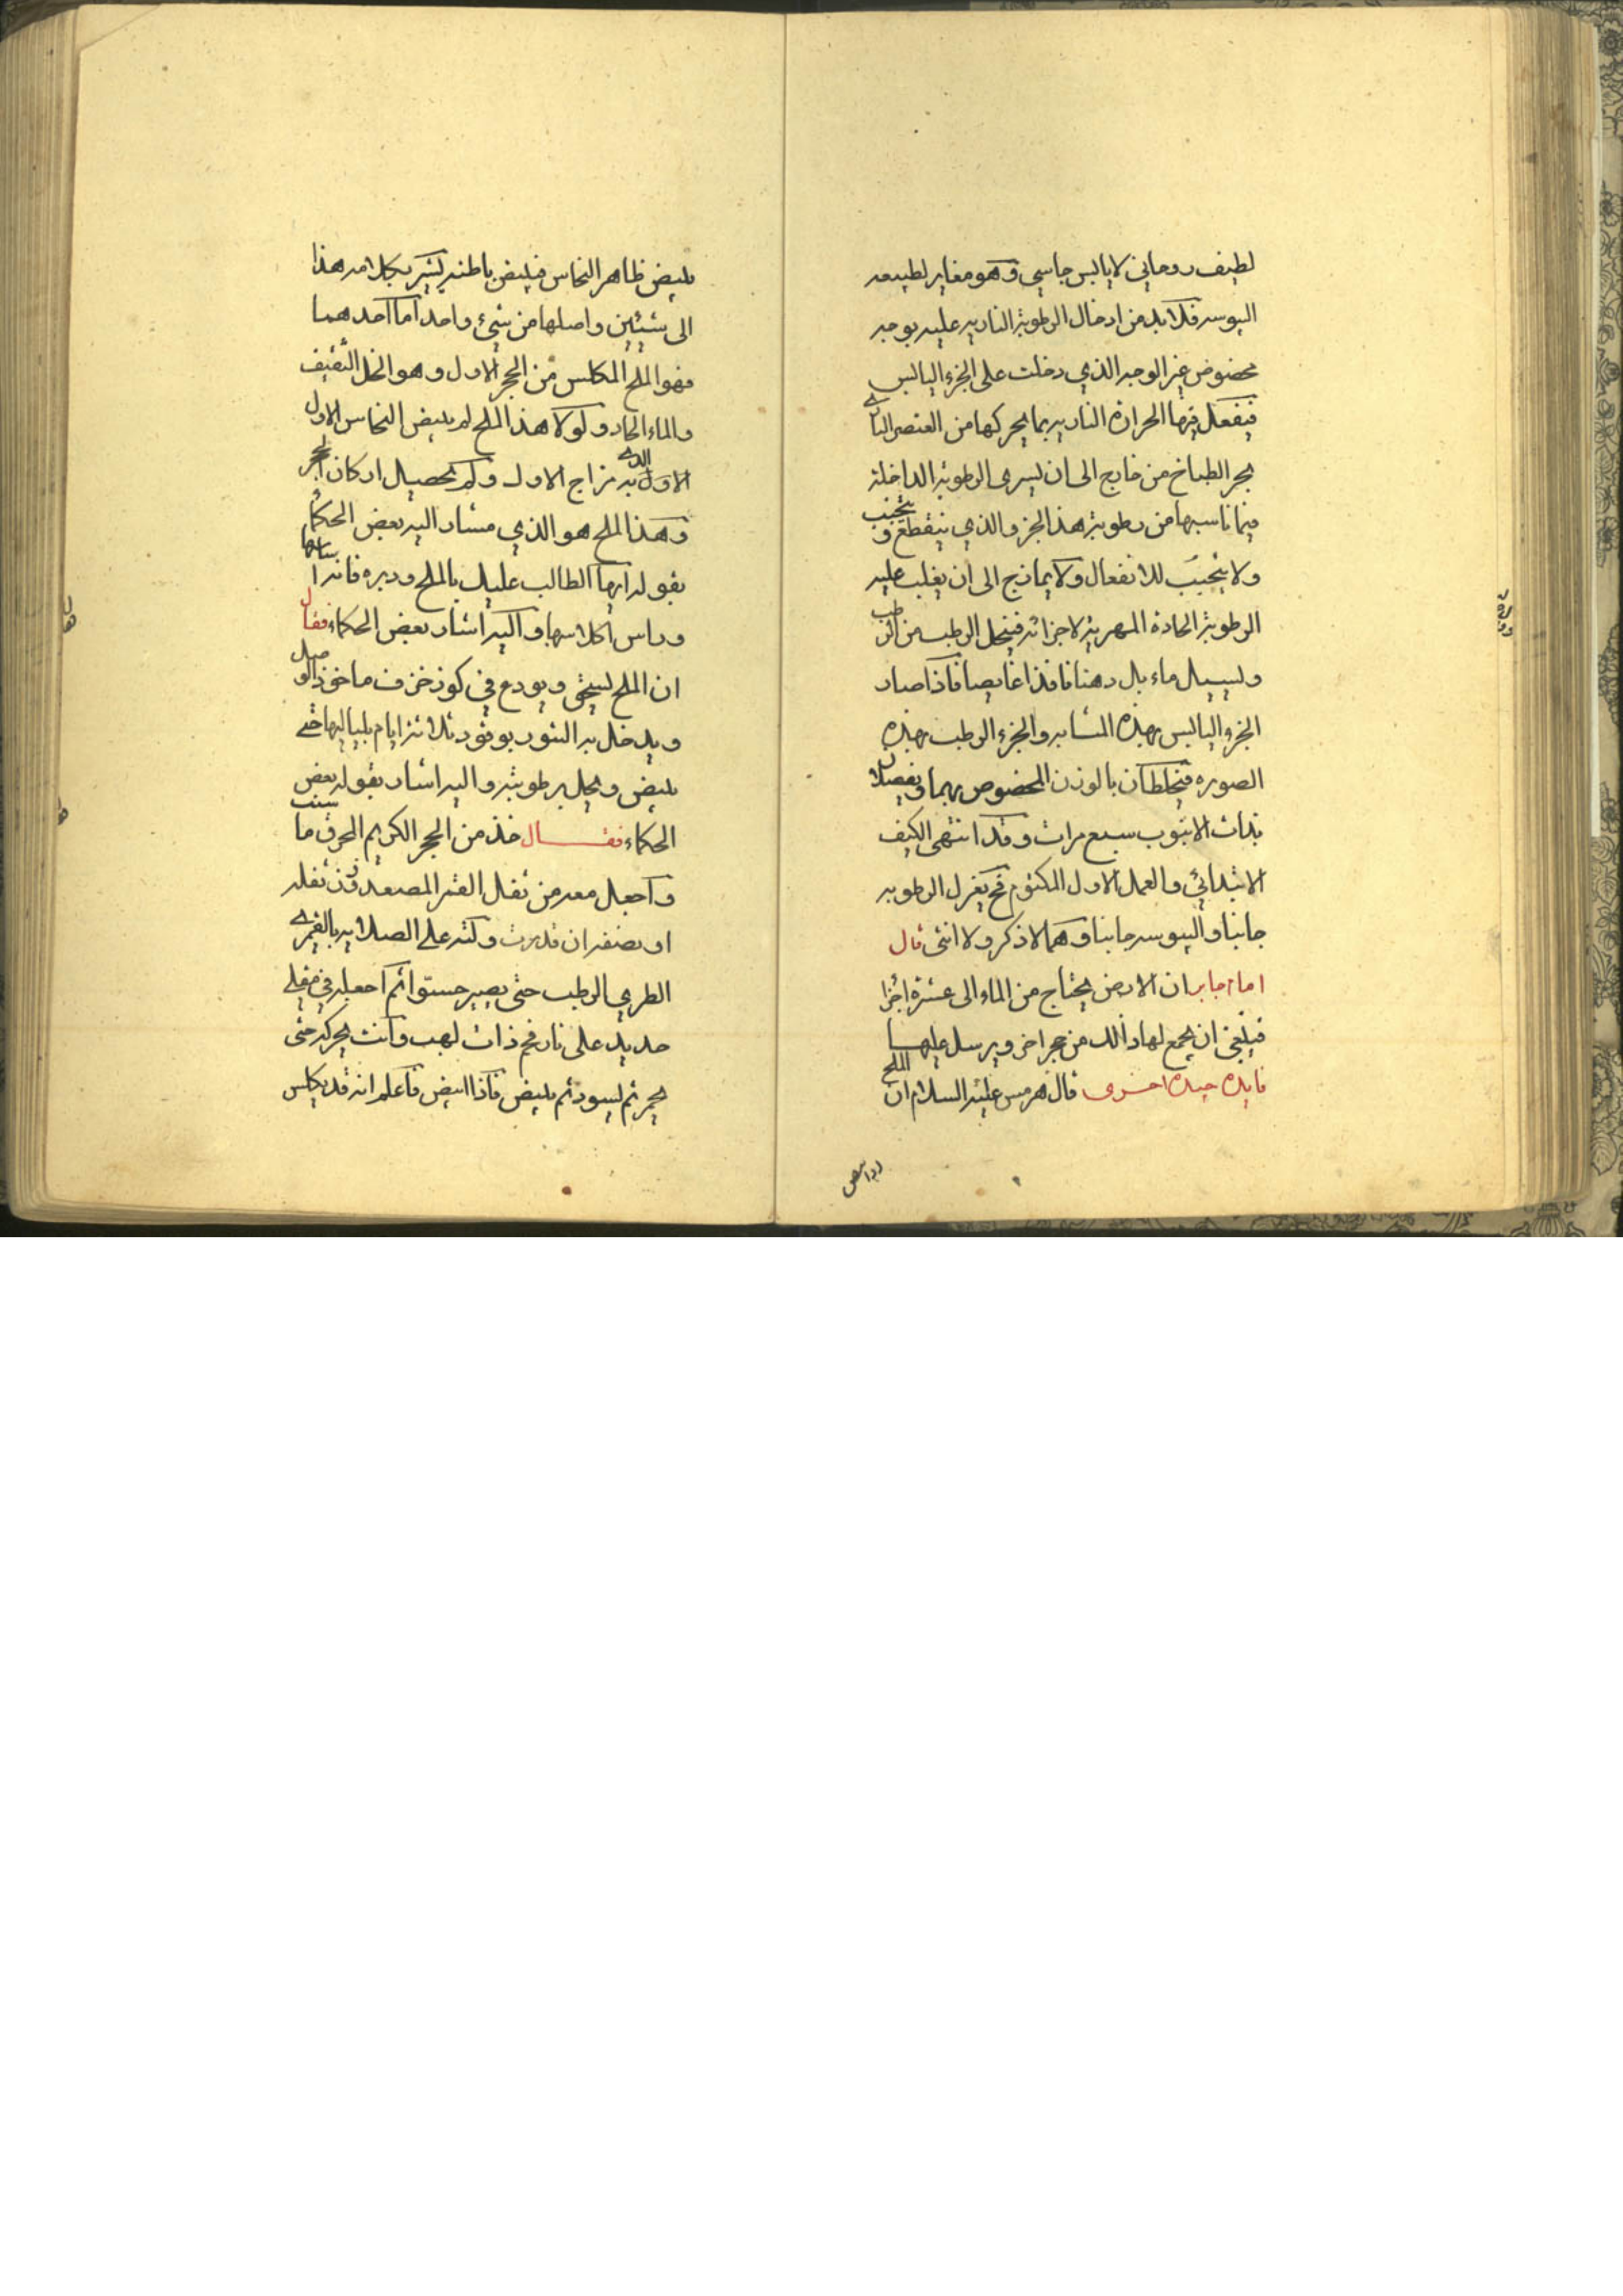 لطيف روحاني لا يابس جاسي وهو مغاير لطبيعه
اليبوسه فلا بد من ادخال الرطوبة الناريه عليه بوجه
مخصوص غير الوجه الذي دخلت على الجزء اليابس
فيفعل فيها الحرارة الناريه بما يحركها من العنصر
بحر الطباخ من خارج الى ان يسرى الرطوبة الداخلة
فيما ناسبها من رطوبة هذا الجزء والذي ينقطع و
ولا يتجنب للانفعال ولا يمازج الى ان يغلب عليه
الرطوبة الحادة المهرية لاجزائه فينحل الرطب من
وليسيل ماء بل دهنا نافذا غايصا فاذا صار
الجزء اليابس بهذه المثابه والجزء الرطب بهذه
الصوره فيخلطان بالوزن المخصوص بهما ويفصلا
بذات الانبوب سبع مرات وقد انتهى الكيف
الابتدائي والعمل الاول المكتوم فح يغزل الرطوبه
جانبا واليبوسه جانبا وهما لا ذكر ولا انثى قال
اما جابر ان الارض يحتاج من الماء الى عشرة اجزا
فينبغي ان يجمع لها ذالك من حجر اخر ويرسل عليها
فايده جيده اخرى قال هرمس عليه السلام ان الملح
يبيض ظاهر النحاس فيبيض باطنه يشير بكلامه هذا
الى شيئين واصلها من شيء واحد اما احدهما
فهو الملح المكلس من الحجر الاول وهو الخل الثقيف
والماء الحاد ولولا هذا الملح لم يبيض النحاس الاول
الاول به مزاج الاول ولم تحصيل اركان الحجر
وهذا الملح هو الذي مشار اليه بعض الحكماء
بقوله ايها الطالب عليك بالملح ودبره فانه
وراس اكلاسها واليه اشار بعض الحكماء فقال
ان الملح يسحق ويودع في كوز خزف ماخوذ
ويدخل به التنور بوقود ثلاثة ايام بلياليها حتى
يبيض ويحل برطوبته واليه اشار بقوله بعض
الحكماء فقال خذ من الحجر الكريم المحرق ما شيت
واجعل معه من ثفل القثر المصعد وزن ثفله
او نصفه ان قدرت ولته على الصلايه بالقمرى
الطري الرطب حتى يصير حسوا ثم اجعله في مقلى
حديد على نار فحم ذات لهب وانت يحركه حتى
يحمر ثم يسود ثم يبيض فاذا ابيض فاعلم انه قد يكلس